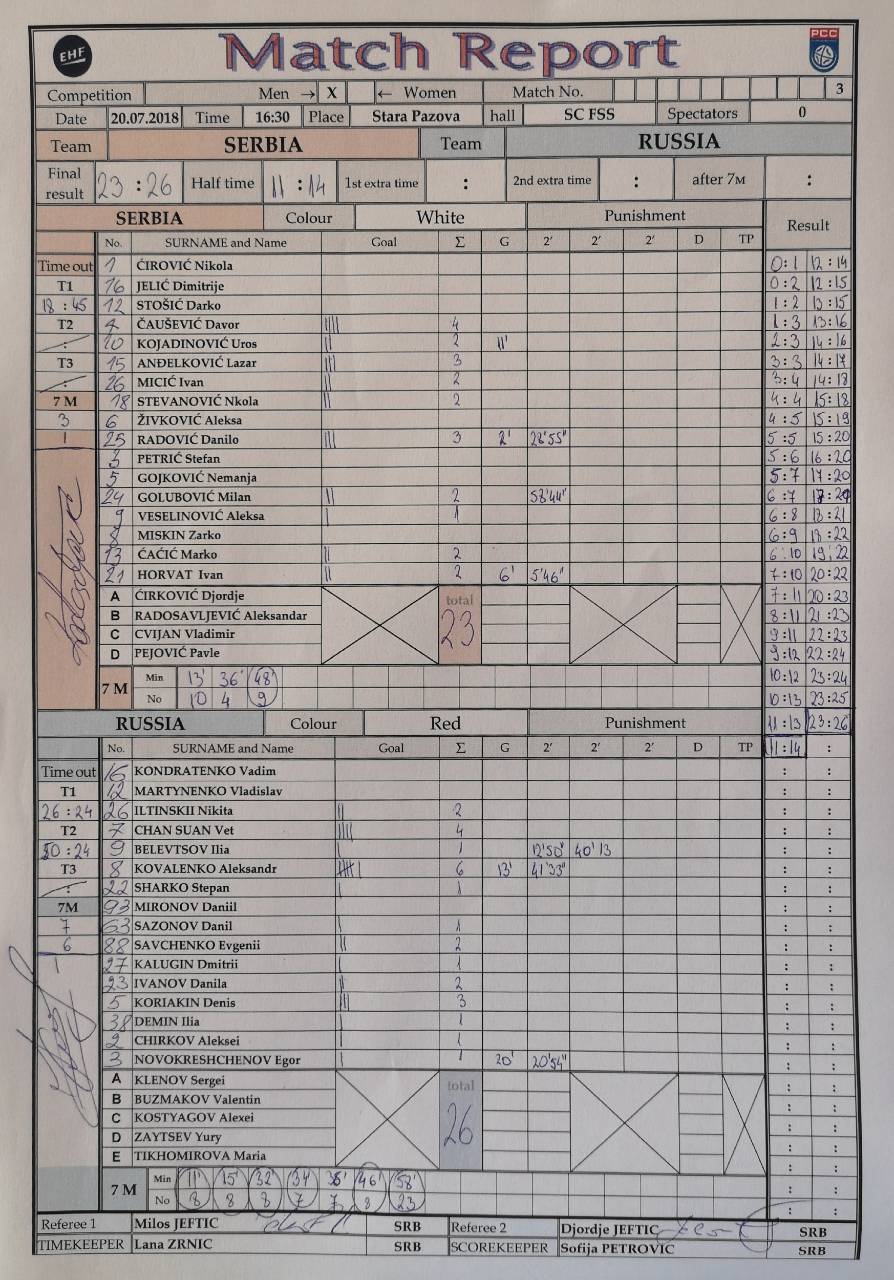 EHF Match Report PCC
Competition Men → X ← Women Match No. 3
Date 20.07.2018 Time 16:30 Place Stara Pazova hall SC FSS Spectators 0
Team SERBIA Team RUSSIA
Final result 23 : 26 Half time 11 : 14 1st extra time : 2nd extra time : after 7M :
SERBIA Colour White Punishment Result
No. SURNAME and Name Goal Σ G 2' 2' 2' D TP
Time out 1 ĆIROVIĆ Nikola 0:1 12:14
T1 16 JELIĆ Dimitrije 0:2 12:15
18 : 45 12 STOŠIĆ Darko 1:2 13:15
T2 4 ČAUŠEVIĆ Davor |||| 4 1:3 13:16
: 20 KOJADINOVIĆ Uros || 2 11' 2:3 14:16
T3 15 ANĐELKOVIĆ Lazar ||| 3 3:3 14:17
: 26 MICIĆ Ivan || 2 3:4 14:18
7 M 18 STEVANOVIĆ Nkola || 2 4:4 15:18
3 6 ŽIVKOVIĆ Aleksa 4:5 15:19
1 25 RADOVIĆ Danilo ||| 3 2' 28'55" 5:5 15:20
3 PETRIĆ Stefan 5:6 16:20
5 GOJKOVIĆ Nemanja 5:7 17:20
24 GOLUBOVIĆ Milan || 2 58'44" 6:7
9 VESELINOVIĆ Aleksa | 1 6:8 18:21
8 MISKIN Zarko 6:9 18:22
13 ĆAĆIĆ Marko || 2 6:10 19:22
21 HORVAT Ivan || 2 6' 5'46" 7:10 20:22
A ĆIRKOVIĆ Djordje total 7:11 20:23
B RADOSAVLJEVIĆ Aleksandar 23 8:11 21:23
C CVIJAN Vladimir 9:11 22:23
D PEJOVIĆ Pavle 9:12 22:24
7 M Min 13' 36' 48' 10:12 23:24
No 10 4 9 10:13 23:25
RUSSIA Colour Red Punishment 11:13 23:26
No. SURNAME and Name Goal Σ G 2' 2' 2' D TP 11:14 :
Time out 16 KONDRATENKO Vadim : :
T1 12 MARTYNENKO Vladislav : :
26 : 24 26 ILTINSKII Nikita || 2 : :
T2 7 CHAN SUAN Vet |||| 4 : :
50 : 24 9 BELEVTSOV Ilia | 1 12'50" 40'13 : :
T3 8 KOVALENKO Aleksandr |||| | 6 13' 41'33" : :
: 22 SHARKO Stepan | 1 : :
7M 93 MIRONOV Daniil : :
7 63 SAZONOV Danil | 1 : :
6 88 SAVCHENKO Evgenii || 2 : :
27 KALUGIN Dmitrii | 1 : :
23 IVANOV Danila || 2 : :
5 KORIAKIN Denis ||| 3 : :
38 DEMIN Ilia | 1 : :
2 CHIRKOV Aleksei | 1 : :
3 NOVOKRESHCHENOV Egor | 1 20' 20'54" : :
A KLENOV Sergei total : :
B BUZMAKOV Valentin 26 : :
C KOSTYAGOV Alexei : :
D ZAYTSEV Yury : :
E TIKHOMIROVA Maria : :
7 M Min 11' 15' 32' 34' 46' 58' : :
No 8 8 8 7 7 8 23 : :
Referee 1 Milos JEFTIC SRB Referee 2 Djordje JEFTIC SRB
TIMEKEEPER Lana ZRNIC SRB SCOREKEEPER Sofija PETROVIC SRB